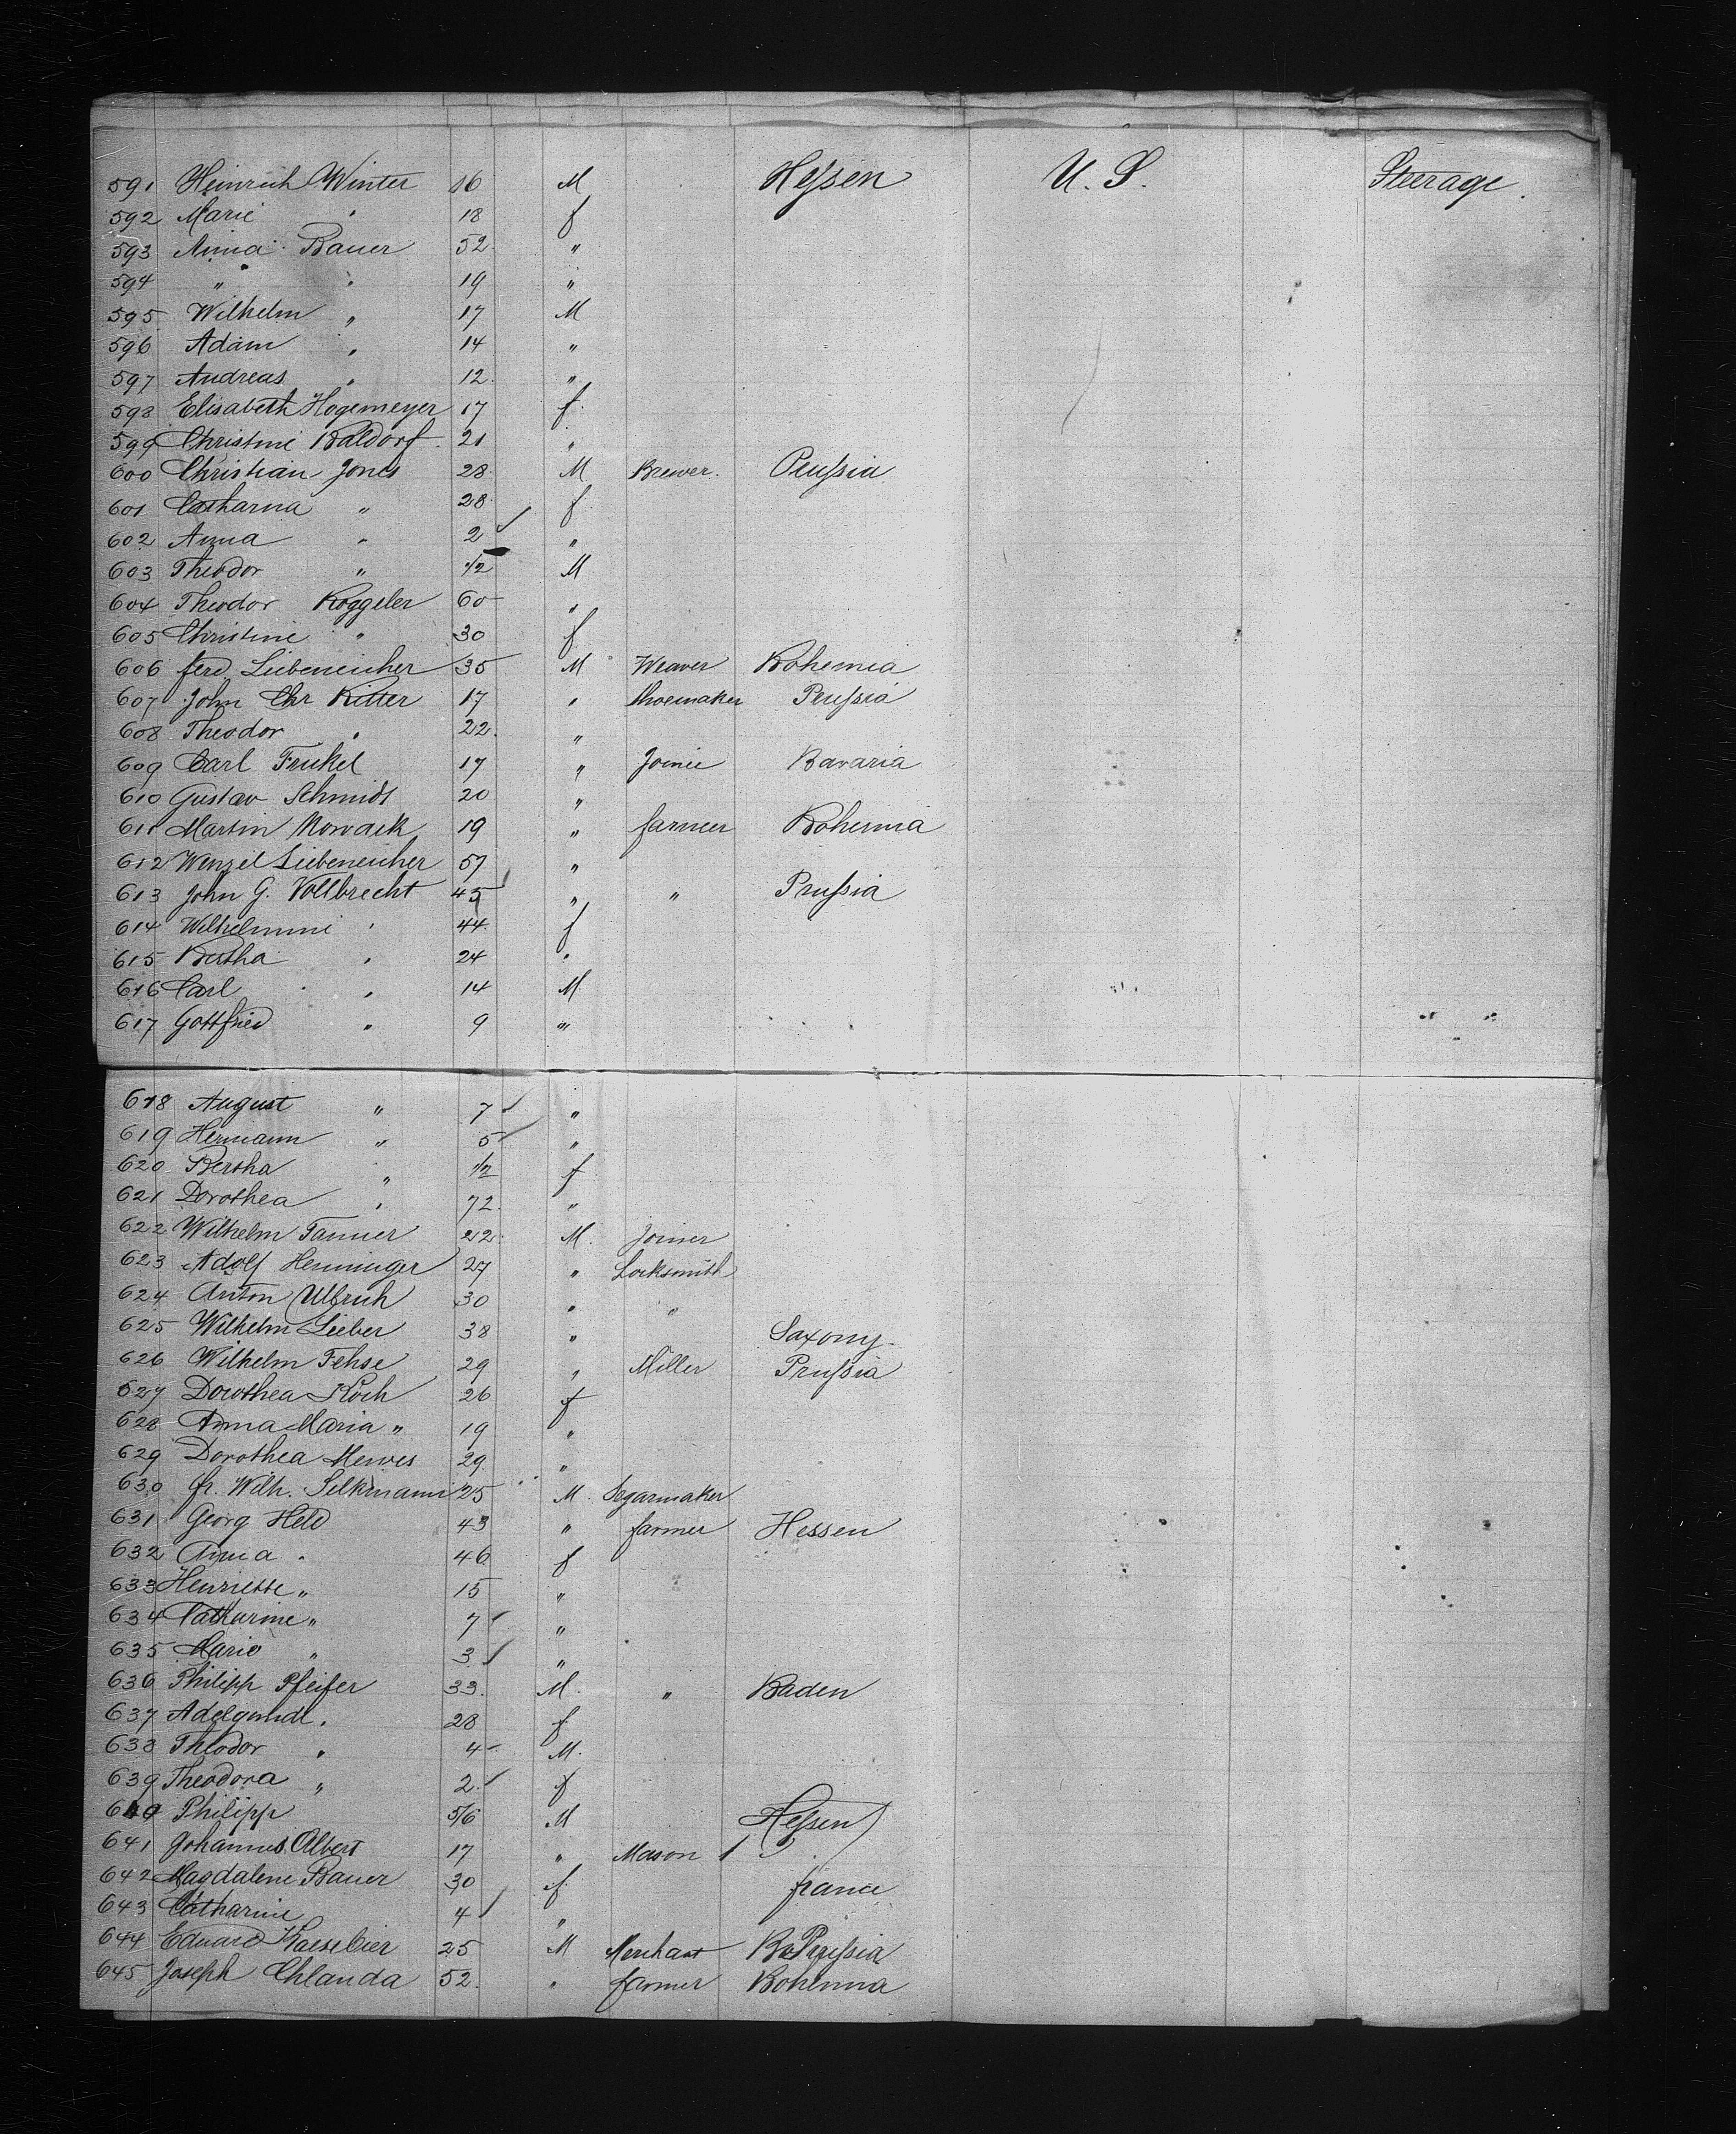 591 Heinrich Winter 16 M Heſsen U. S. Steerage.
592 Marie " 18 f
593 Anna Bauer 52 "
594 " " 19 "
595 Wilhelm " 17 M
596 Adam " 14 "
597 Andreas " 12 "
598 Elisabeth Hogemeyer 17 f
599 Christine Baldorf 21 "
600 Christian Jones 28 M Brewer Peuſsia
601 Catharina " 28 f
602 Anna " 2 "
603 Theodor " 1/2 M
604 Theodor Roggeler 60 "
605 Christine " 30 f
606 ferd Liebeneicher 35 M Weaver Bohemia
607 John Chr Ritter 17 " Shoemaker Peuſsia
608 Theodor " 22 "
609 Carl 17 " Bavaria
610 Gustav Schmidt 20 "
611 Martin Nowack 19 " farmer Bohemia
612 Wenzel Liebeneicher 57 "
613 John G. Vollbrecht 45 " " Pruſsia
614 Wilhelmine " 44 f
615 Bertha " 24 "
616 Carl " 14 M
617 Gottfried " 9 "
618 August " 7 "
619 Hermann " 5 "
620 Bertha " 1/2 f
621 Dorothea " 72 "
622 Wilhelm Tanner 22 M. Joiner
623 Adolf Henninger 27 " Locksmith
624 Anton Ulbrich 30 " "
625 Wilhelm Lieber 38 " Saxony
626 Wilhelm Fehse 29 " Miller Pruſsia
627 Dorothea Koch 26 f
628 Anna Maria " 19 "
629 Dorothea Mewes 29 "
630 fr. Wilh. Selkmann 25 M. Segarmaker
631 Georg Held 43 " farmer Hessen
632 Anna " 46 f
633 Henriette " 15 "
634 Catharine " 7 "
635 Marie " 3 "
636 Philipp Pfeifer 33 M. " Baden
637 Adelgunde " 28 f
638 Theodor " 4 M.
639 Theodora " 2 f
640 Philipp 5/6 M Heſsen
641 Johannes Albert 17 " Mason
642 Magdalene Bauer 30 f france
643 Catharine 4 "
644 Eduard Kaesebier 25 M Merchant Pruſsia
645 Joseph Chlanda 52 " farmer Bohemia